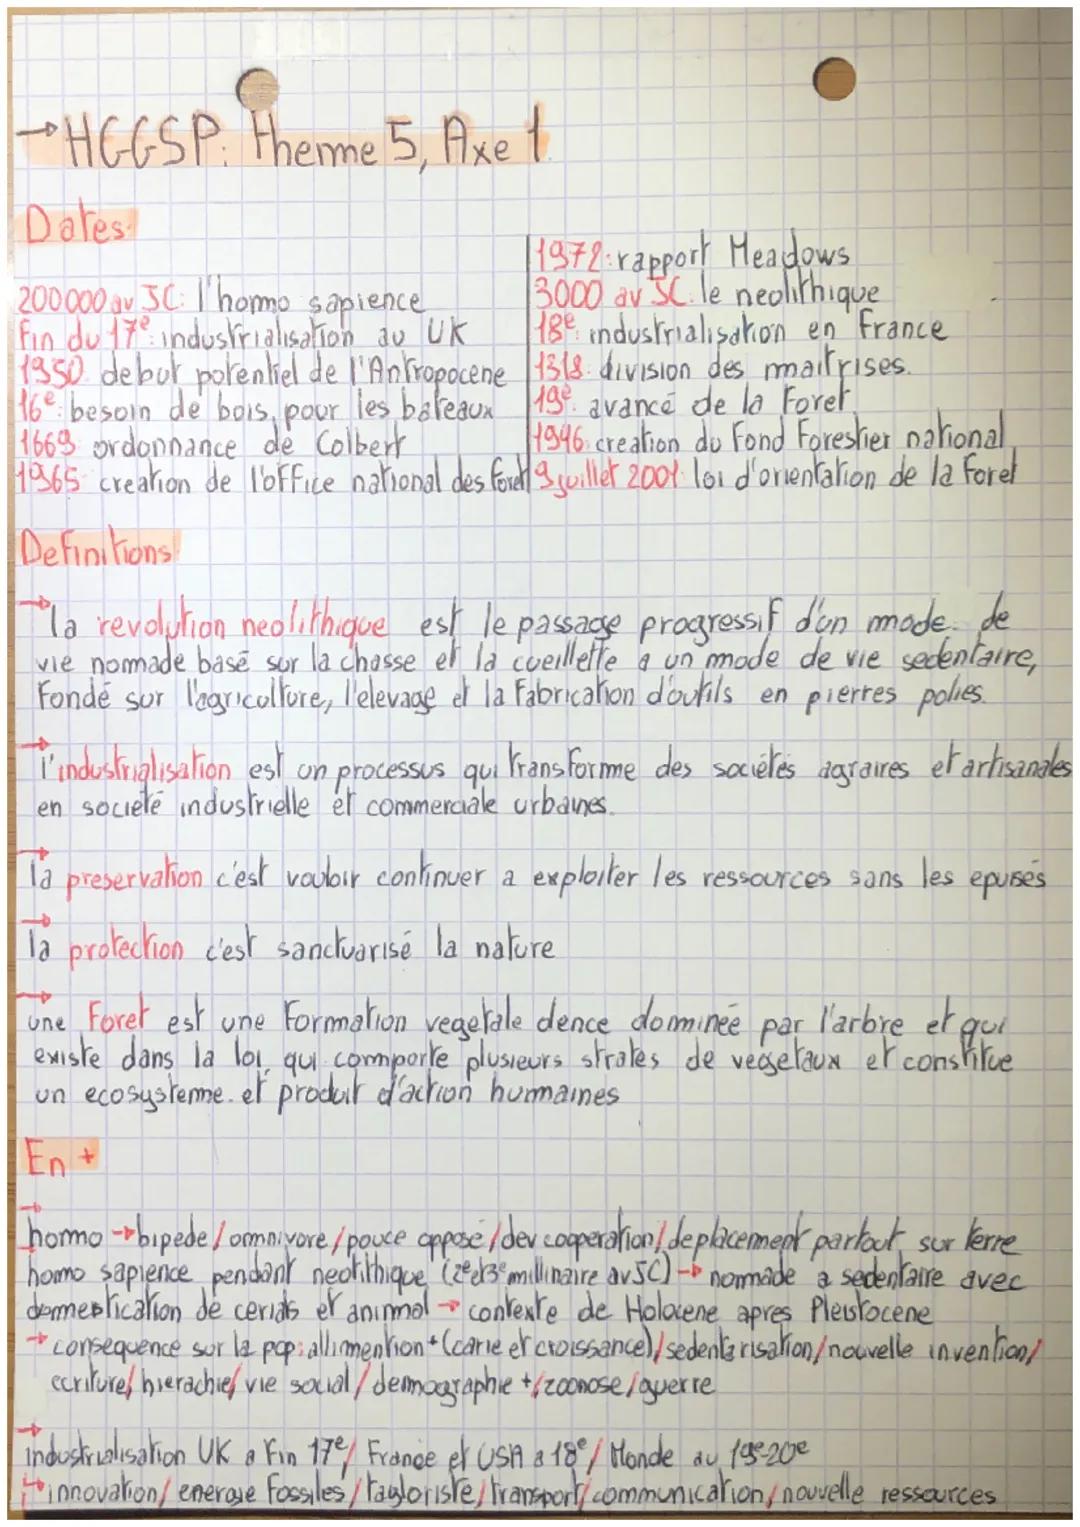 →HGGSP: Theme 5, Axe 1.
Dates:
200000 av JC: l'homo sapience
Fin du 17e: industrialisation au UK
1950: debut potentiel de l'Antropocene
16e: besoin de bois, pour les bateaux
1669: ordonnance de Colbert
1965: creation de l'office national des foret
1972: rapport Meadows
3000 av JC: le neolithique
18e: industrialisation en France
1318: division des maitrises.
19e: avancé de la Foret
1946: creation du Fond Forestier national
9 juillet 2001: loi d'orientation de la Foret
Definitions:
→la revolution neolithique est le passage progressif d'un mode de
vie nomade basé sur la chasse et la cueillette a un mode de vie sedentaire,
Fondé sur l'agriculture, l'elevage et la Fabrication d'outils en pierres polies.
→l'industrialisation est un processus qui transforme des sociétés agraires et artisanales
en societé industrielle et commerciale urbaines.
→la preservation c'est vouloir continuer a exploiter les ressources sans les epuisés
→la protection c'est sanctuarisé la nature
→une Foret est une Formation vegetale dence dominée par l'arbre et qui
existe dans la loi, qui comporte plusieurs strates de vegetaux et constitue
un ecosysteme. et produit d'action humaines
En +
→homo →bipede/omnivore/pouce opposé/dev cooperation/deplacement partout sur terre
homo sapience pendant neolithique (2e et 3e millinaire av JC)→ nomade a sedentaire avec
domestication de cerials et animal → contexte de Holocene apres Pleistocene
→ consequence sur la pop: allimention + (carie et croissance)/sedentarisation/nouvelle invention/
ecriture/hierachie/vie social/demographie +/zoonose/guerre
→industrialisation UK a Fin 17e/ France et USA a 18e/ Monde au 19e-20e
↳innovation/energie Fossiles/tayloriste/transport/communication/nouvelle ressources